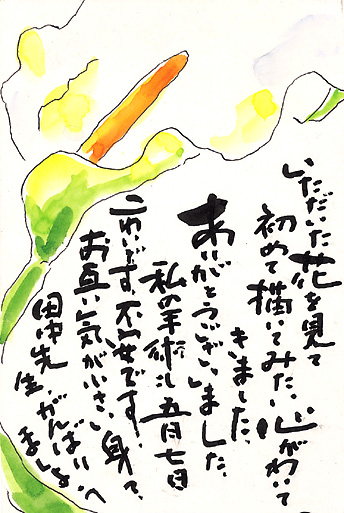 いただいた花を見て
初めて描いてみたい心がわいて
きました、
ありがとうございました、
私の手術は五月七日
こわいです、不安です!、身て、
お互い気が小さい
田中先生がんばり
ましょ